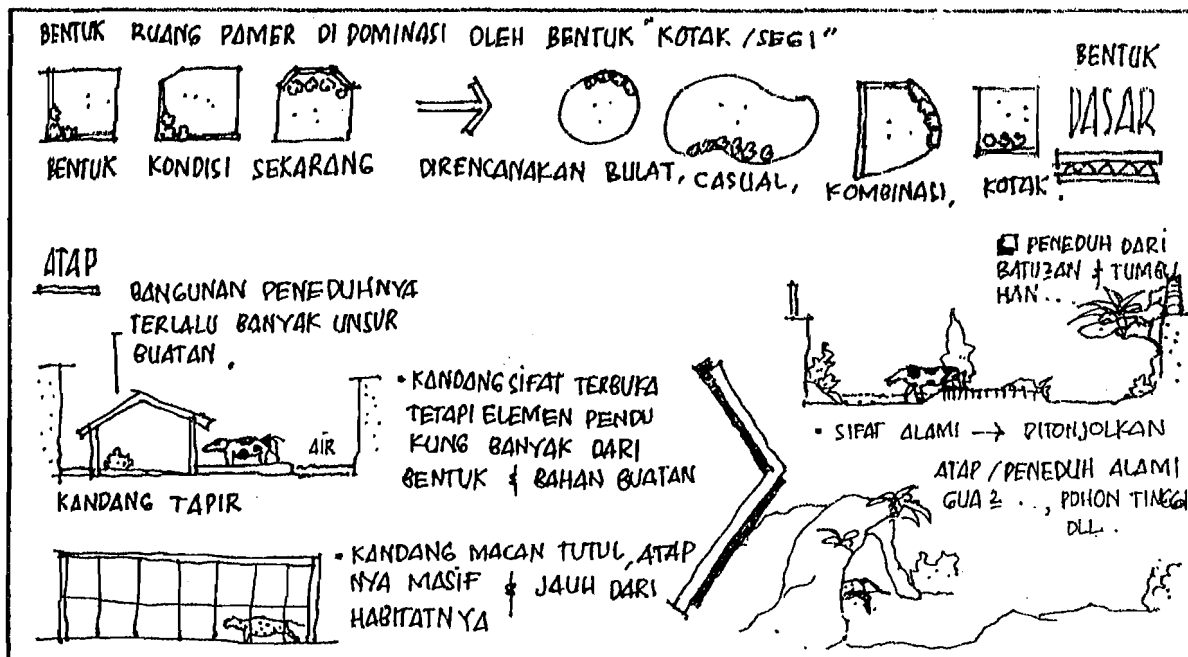 BENTUK RUANG PAMER DI DOMINASI OLEH BENTUK "KOTAK /SEGI"
BENTUK KONDISI SEKARANG
DIRENCANAKAN BULAT, CASUAL, KOMBINASI, KOTAK.
BENTUK
DASAR
ATAP
BANGUNAN PENEDUHNYA
TERLALU BANYAK UNSUR
BUATAN.
AIR
KANDANG TAPIR
• KANDANG SIFAT TERBUKA
TETAPI ELEMEN PENDU
KUNG BANYAK DARI
BENTUK & BAHAN BUATAN
• KANDANG MACAN TUTUL, ATAP
NYA MASIF & JAUH DARI
HABITATNYA
PENEDUH DARI
BATU2AN & TUMBU
HAN...
• SIFAT ALAMI → DITONJOLKAN
ATAP / PENEDUH ALAMI
GUA2 .., POHON TINGGI
DLL..